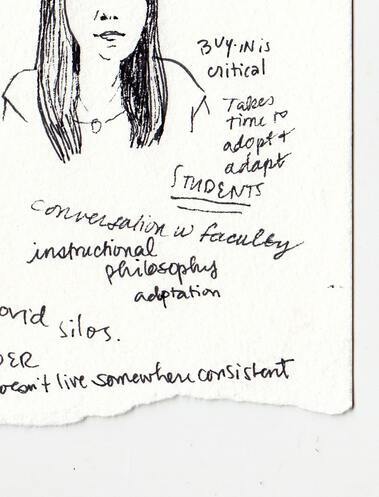 BUY-IN is
critical
Takes
time to
adopt +
adapt
STUDENTS
conversation w faculty
instructional
philosophy
adaptation
silos.
live somewhere consistent